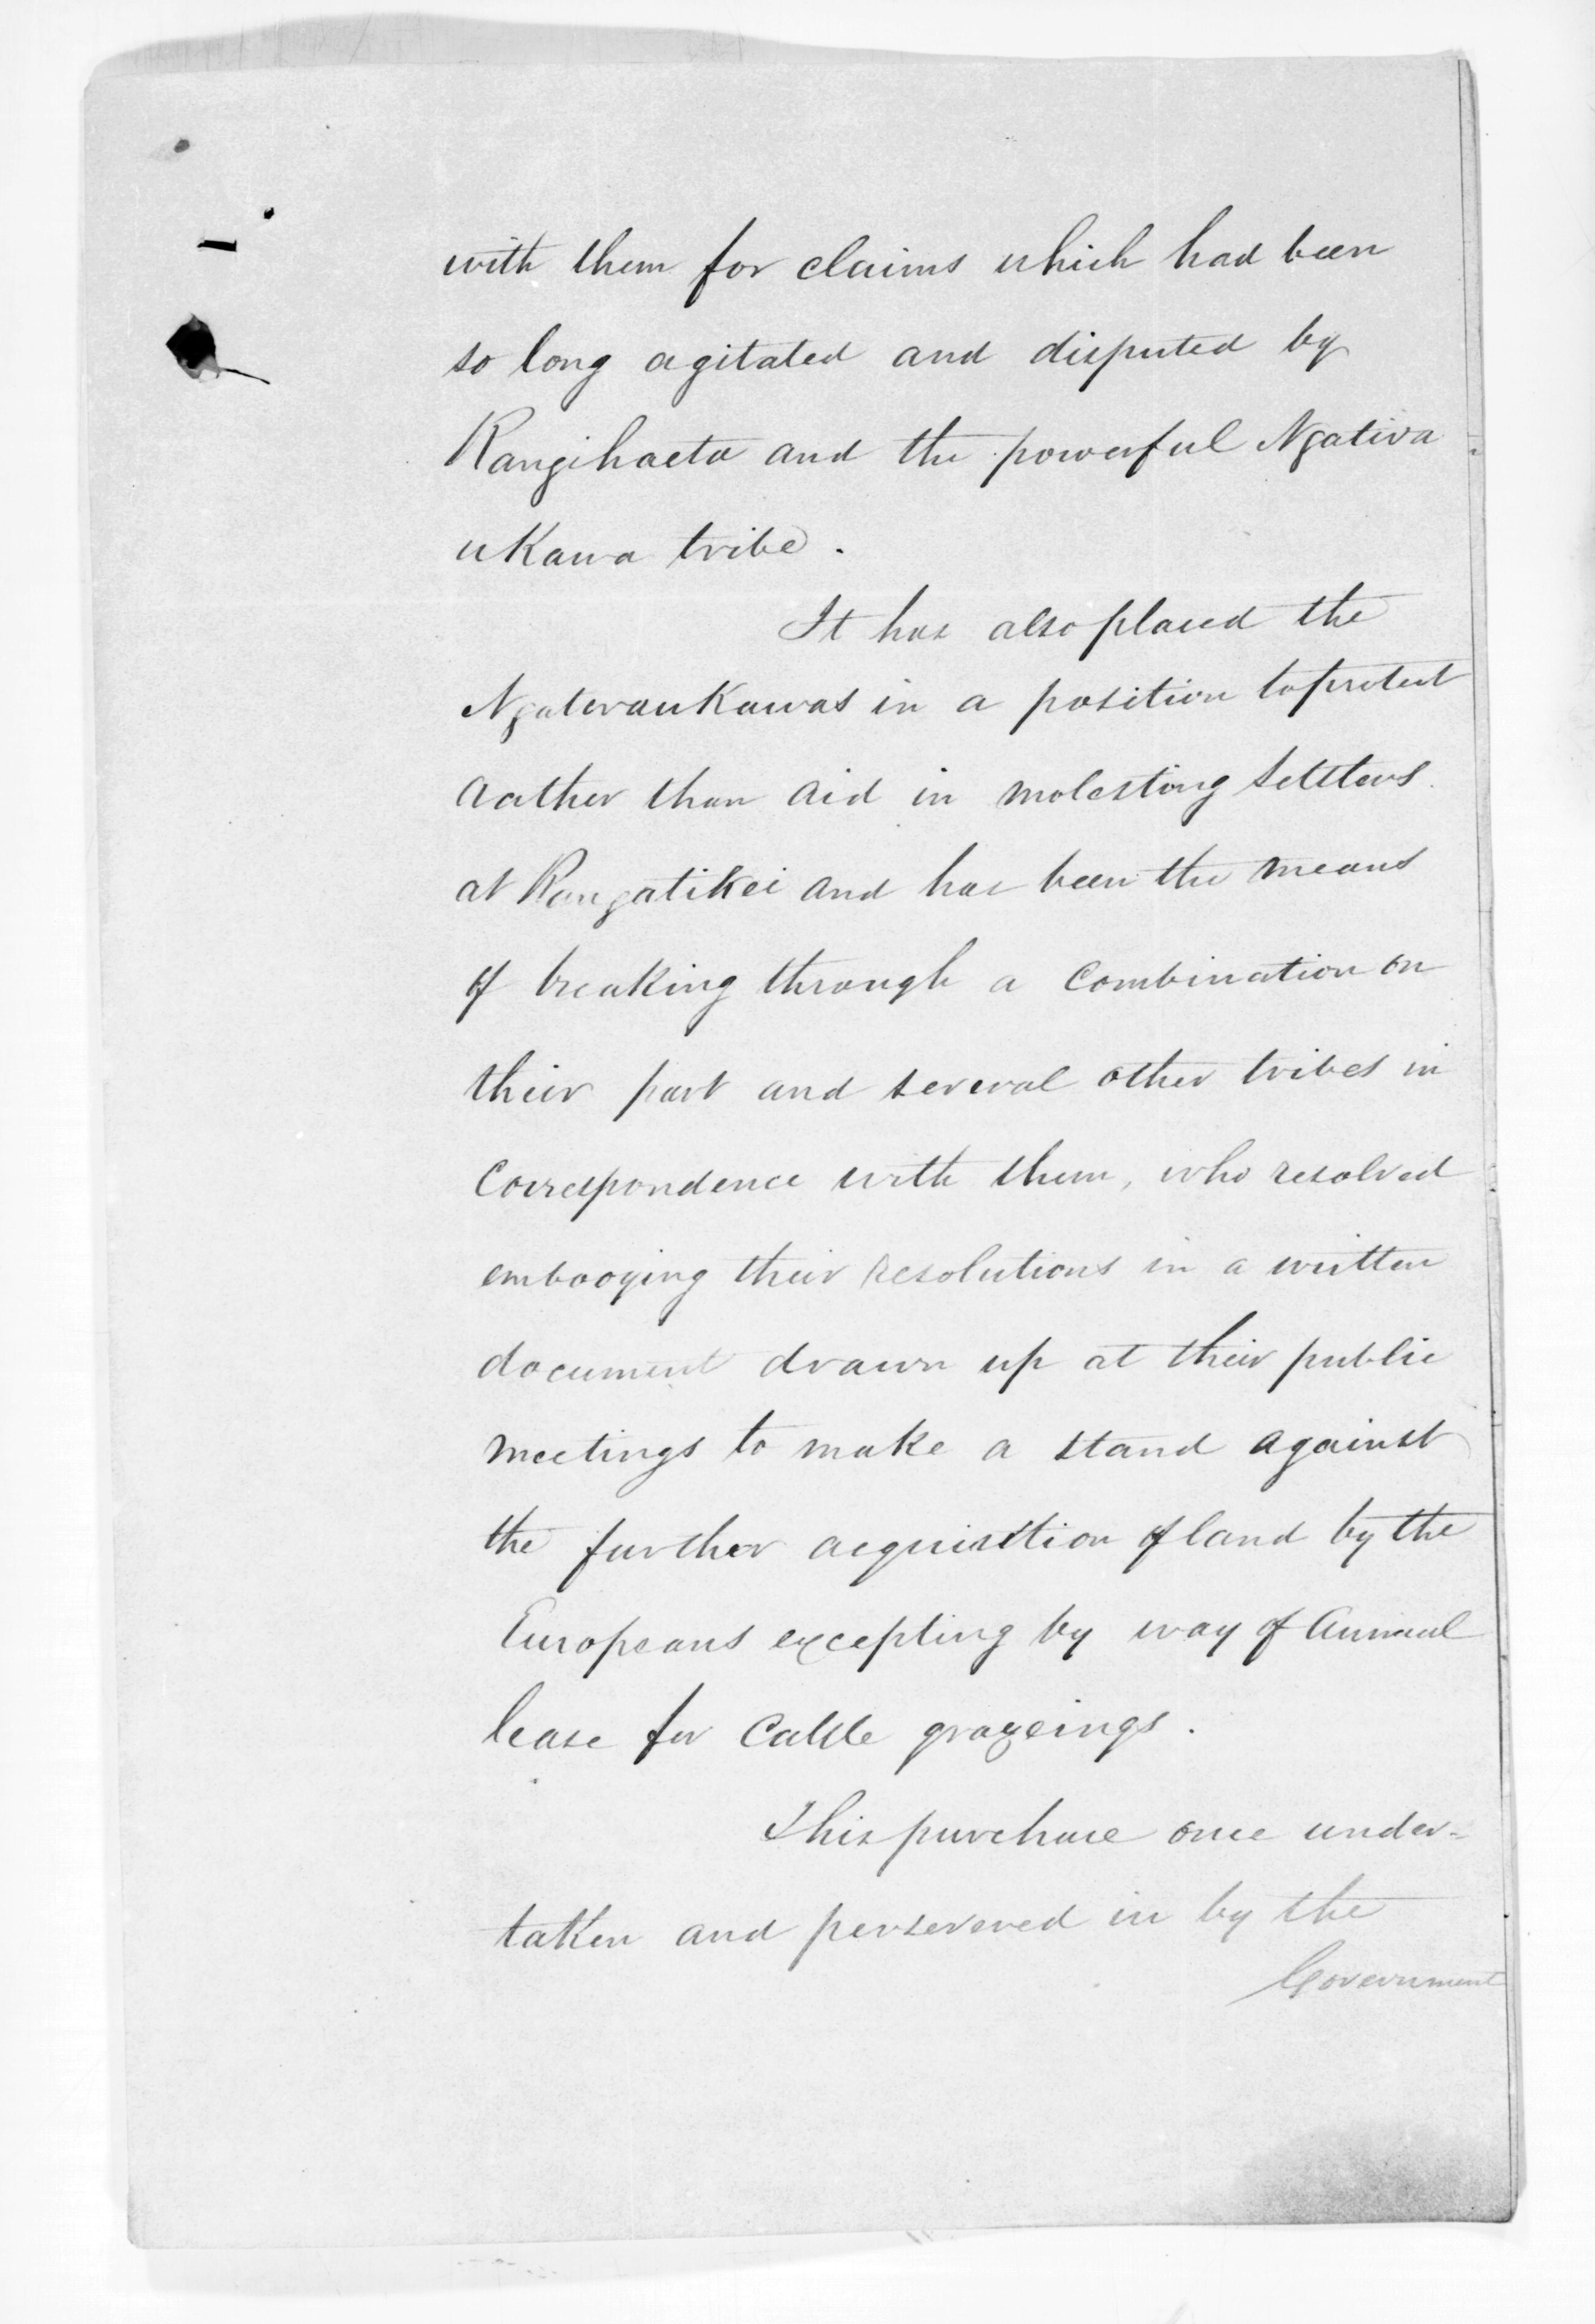 with them for claims which had been
so long agitated and disputed by
Rangihaeta and the powerful Ngativa
ukawa tribe.
It has also placed the
Ngatevaukawas in a position to protect
rather than aid in molesting settlers
at Rangatikei and has been the means
of breaking through a combination on
their part and several other tribes in
Correspondence with them, who resolved
embodying their resolutions in a written
document drawn up at their public
meetings to make a stand against
the further acquisition of land by the
Europeans excepting by way of Annual
lease for Cattle grazeings.
This purchase once under-
taken and persevered in by the
Government